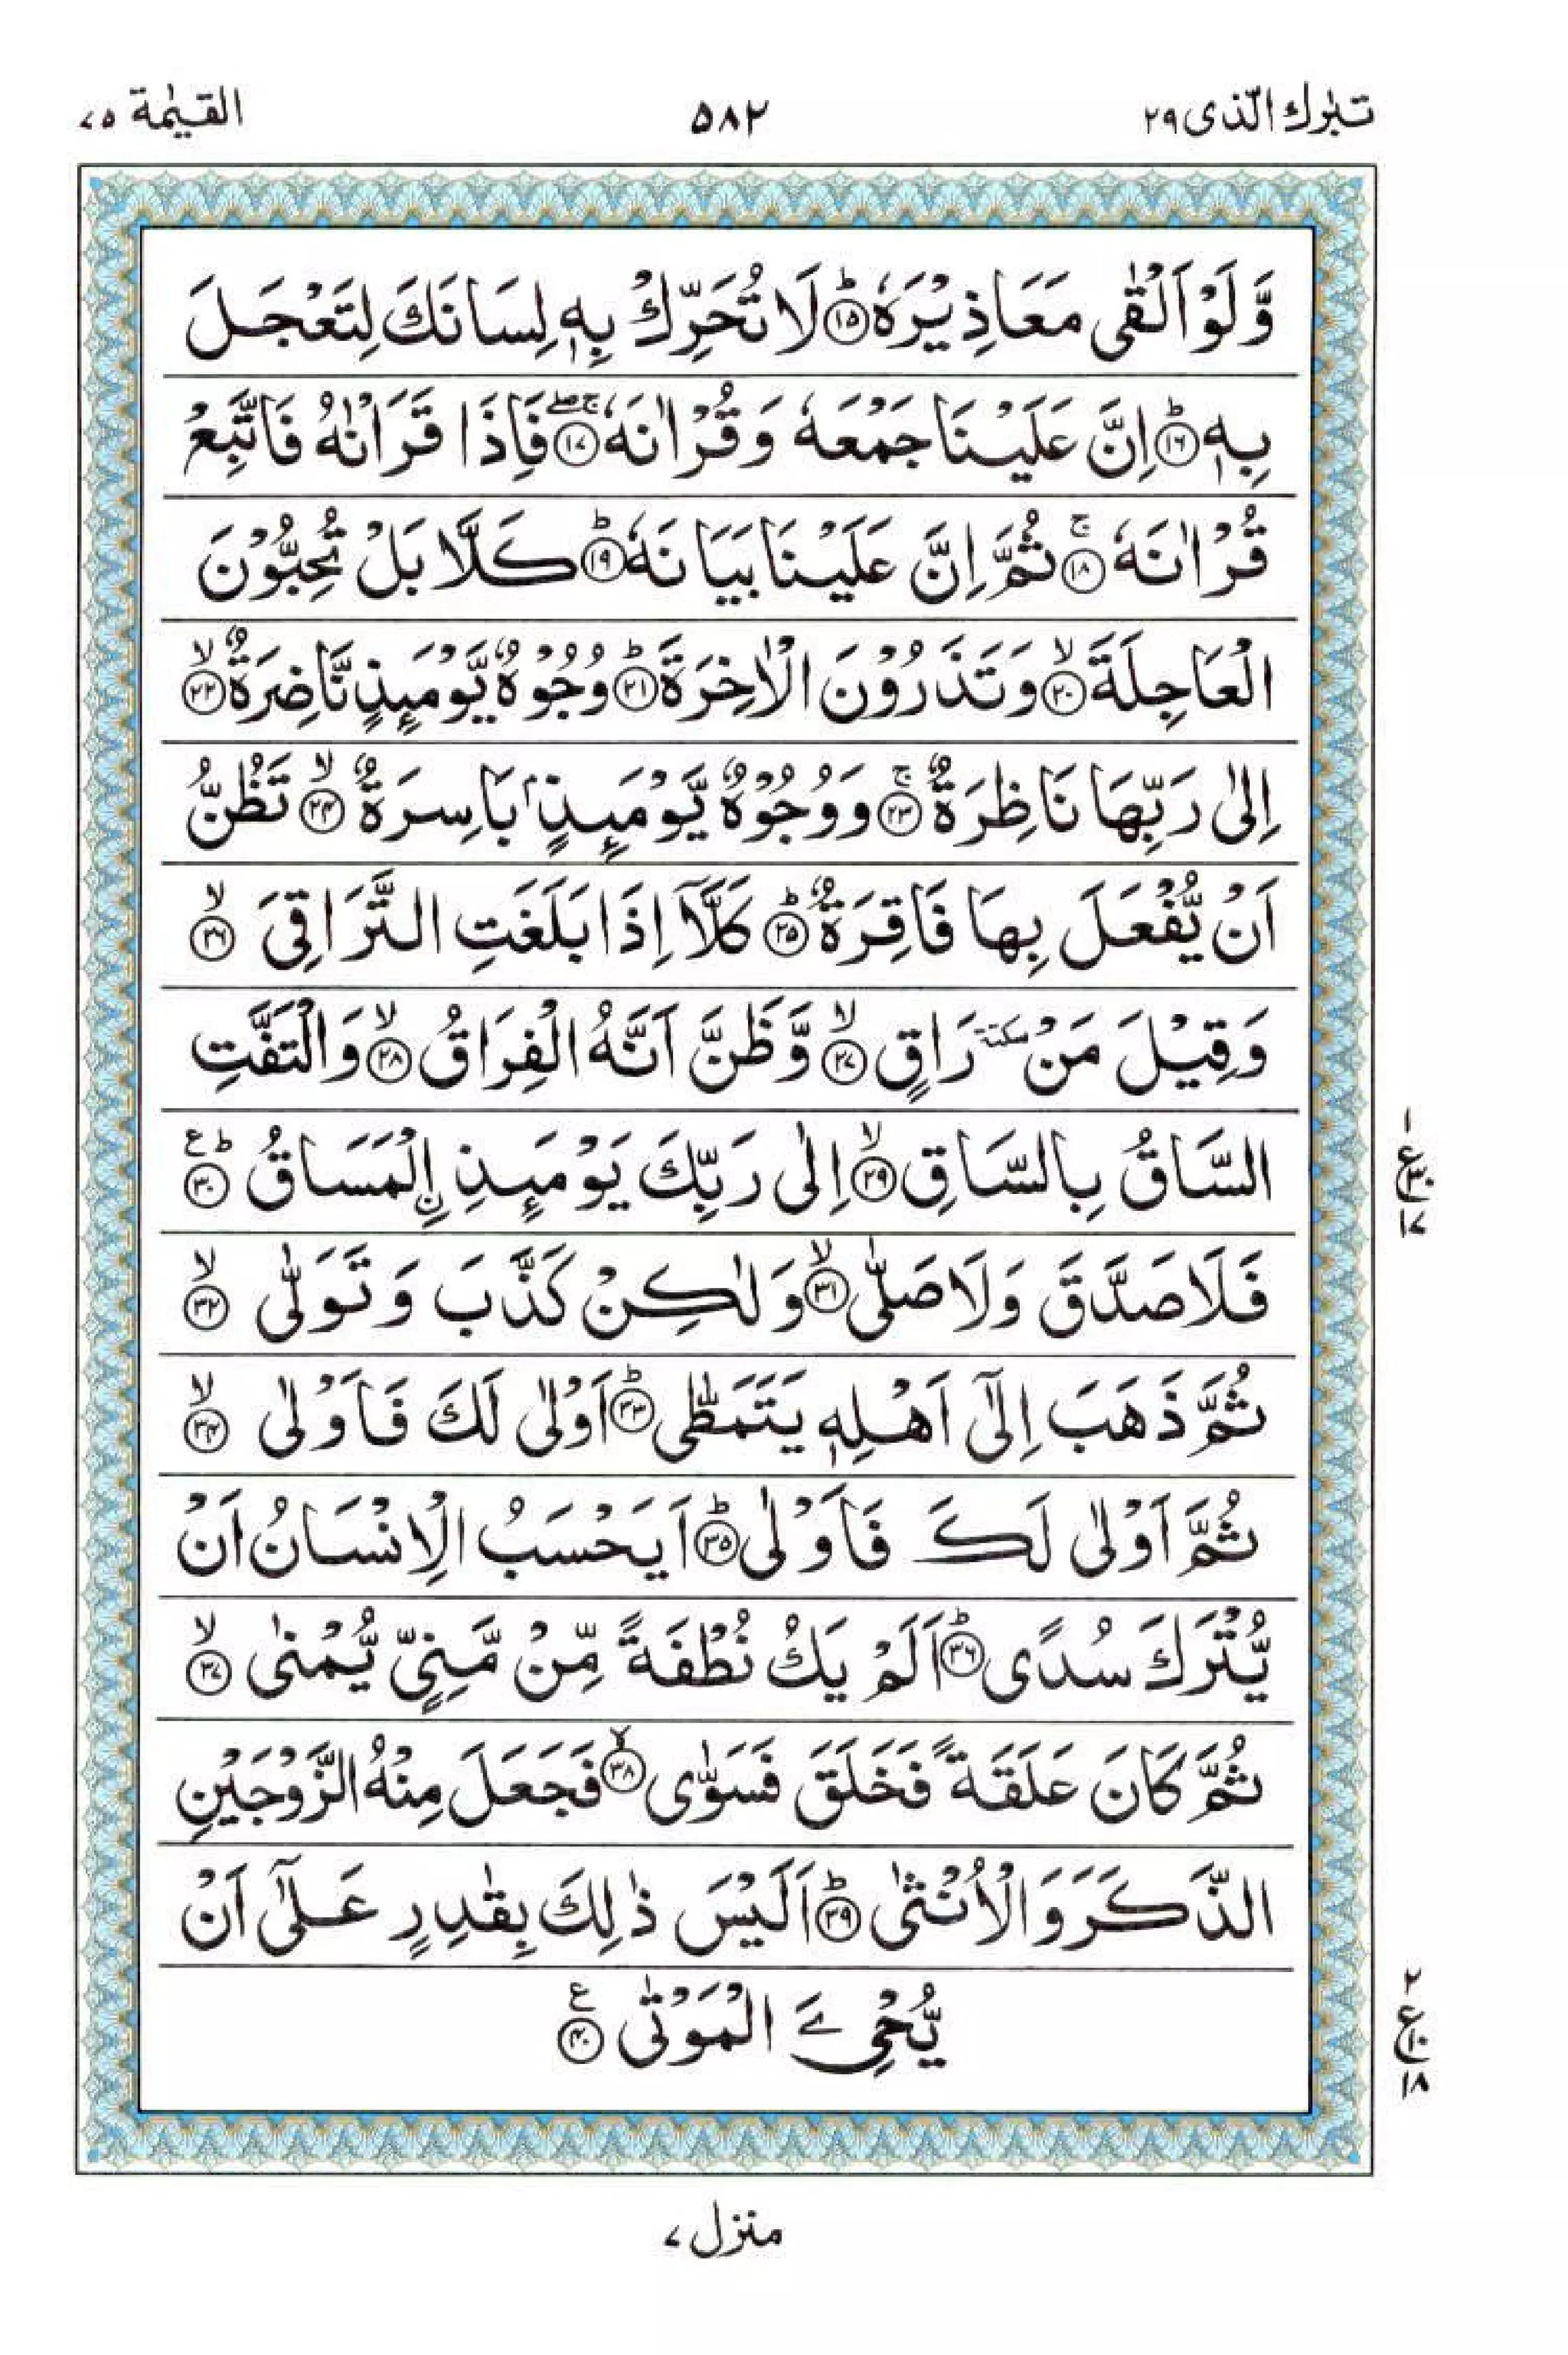 تبٰرك الّذی ۲۹
۵۸۲
القيٰمة ۷۵
وَّلَوْ اَلْقٰى مَعَاذِيْرَهٗ ؕ‏ ﴿۱۵﴾ لَا تُحَرِّكْ بِهٖ لِسَانَكَ لِتَعْجَلَ
بِهٖ ؕ‏ ﴿۱۶﴾ اِنَّ عَلَيْنَا جَمْعَهٗ وَ قُرْاٰنَهٗ ۚۖ‏ ﴿۱۷﴾ فَاِذَا قَرَاْنٰهُ فَاتَّبِعْ
قُرْاٰنَهٗ ۚ‏ ﴿۱۸﴾ ثُمَّ اِنَّ عَلَيْنَا بَيَانَهٗ ؕ‏ ﴿۱۹﴾ كَلَّا بَلْ تُحِبُّوْنَ
الْعَاجِلَةَ ۙ‏ ﴿۲۰﴾ وَتَذَرُوْنَ الْاٰخِرَةَ ؕ‏ ﴿۲۱﴾ وُجُوْهٌ يَّوْمَىِٕذٍ نَّاضِرَةٌ ۙ‏ ﴿۲۲﴾
اِلٰى رَبِّهَا نَاظِرَةٌ ۚ‏ ﴿۲۳﴾ وَوُجُوْهٌ يَّوْمَىِٕذٍۭ بَاسِرَةٌ ۙ‏ ﴿۲۴﴾ تَظُنُّ
اَنْ يُّفْعَلَ بِهَا فَاقِرَةٌ ؕ‏ ﴿۲۵﴾ كَلَّاۤ اِذَا بَلَغَتِ التَّرَاقِىَ ۙ‏ ﴿۲۶﴾
وَقِيْلَ مَنْ سكتة رَاقٍ ۙ‏ ﴿۲۷﴾ وَّظَنَّ اَنَّهُ الْفِرَاقُ ۙ‏ ﴿۲۸﴾ وَالْتَفَّتِ
السَّاقُ بِالسَّاقِ ۙ‏ ﴿۲۹﴾ اِلٰى رَبِّكَ يَوْمَىِٕذِ اِ۟لْمَسَاقُ ؕ‏ ع ﴿۳۰﴾
فَلَا صَدَّقَ وَلَا صَلّٰى ۙ‏ ﴿۳۱﴾ وَلٰكِنْ كَذَّبَ وَتَوَلّٰى ۙ‏ ﴿۳۲﴾
ثُمَّ ذَهَبَ اِلٰٓى اَهْلِهٖ يَتَمَطّٰى ؕ‏ ﴿۳۳﴾ اَوْلٰى لَكَ فَاَوْلٰى ۙ‏ ﴿۳۴﴾
ثُمَّ اَوْلٰى لَكَ فَاَوْلٰى ؕ‏ ﴿۳۵﴾ اَيَحْسَبُ الْاِنْسَانُ اَنْ
يُّتْرَكَ سُدًى ؕ‏ ﴿۳۶﴾ اَلَمْ يَكُ نُطْفَةً مِّنْ مَّنِىٍّ يُّمْنٰى ۙ‏ ﴿۳۷﴾
ثُمَّ كَانَ عَلَقَةً فَخَلَقَ فَسَوّٰى ۙ‏ ﴿۳۸﴾ فَجَعَلَ مِنْهُ الزَّوْجَيْنِ
الذَّكَرَ وَالْاُنْثٰى ؕ‏ ﴿۳۹﴾ اَلَيْسَ ذٰلِكَ بِقٰدِرٍ عَلٰٓى اَنْ
يُّحْیِۦَ الْمَوْتٰى ع ﴿۴۰﴾
۱
ع ۳۰
۱۷
۲
ع ۱۰
۱۸
منزل ۷